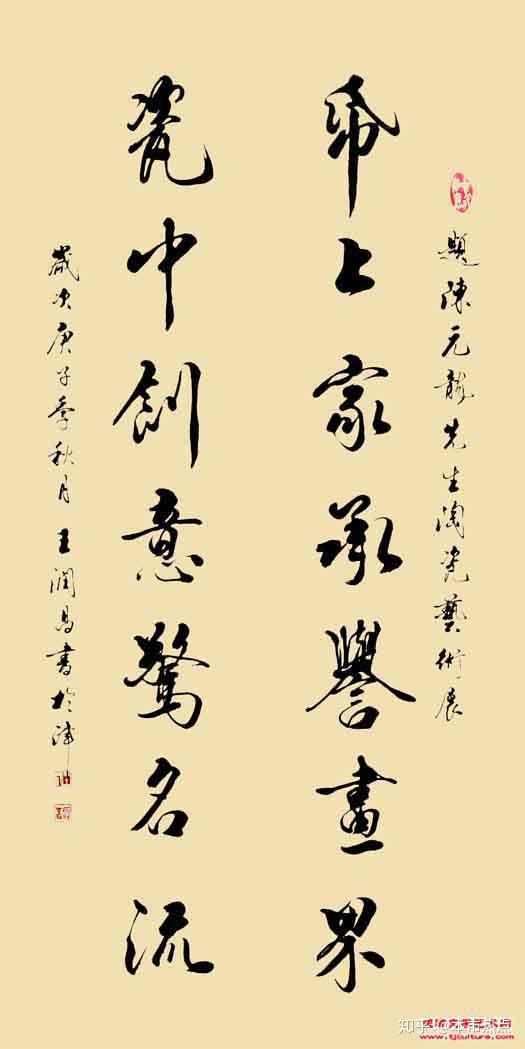 題陳元龍先生陶瓷藝術展
帋上家承譽畫界
瓷中創意驚名流
歲次庚子季秋月王潤昌書於津
知乎 @本市热点
www.tjculture.com